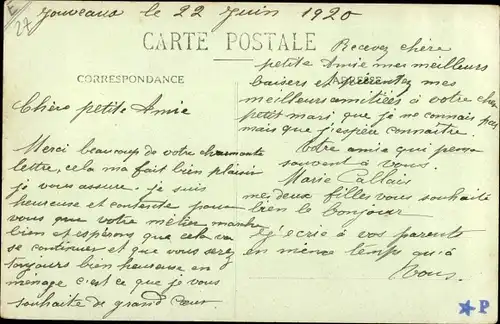 le 22 Juin 1920
27
CARTE POSTALE
CORRESPONDANCE
ADRESSE
Chère petite Amie
Merci beaucoup de votre charmante
lettre, cela ma fait bien plaisir
je vous assure. je suis
heureuse et contente pour
vous que votre métier marche
bien et espérons que cela va
se continuer et que vous serez
toujours bien heureuse en
menage c'est ce que je vous
souhaite de grand Cœur
Recevez chère
petite Amie mes meilleurs
baisers et présentez mes
meilleurs amitiées à votre cher
petit mari que je ne connais pas
mais que j'espère connaitre.
Votre amie qui pense
souvent à vous.
Marie Callais
mes deux filles vous souhaite
bien le bonjour
j'ecrie à vos parents
en même temps qu'à
Vous.
P